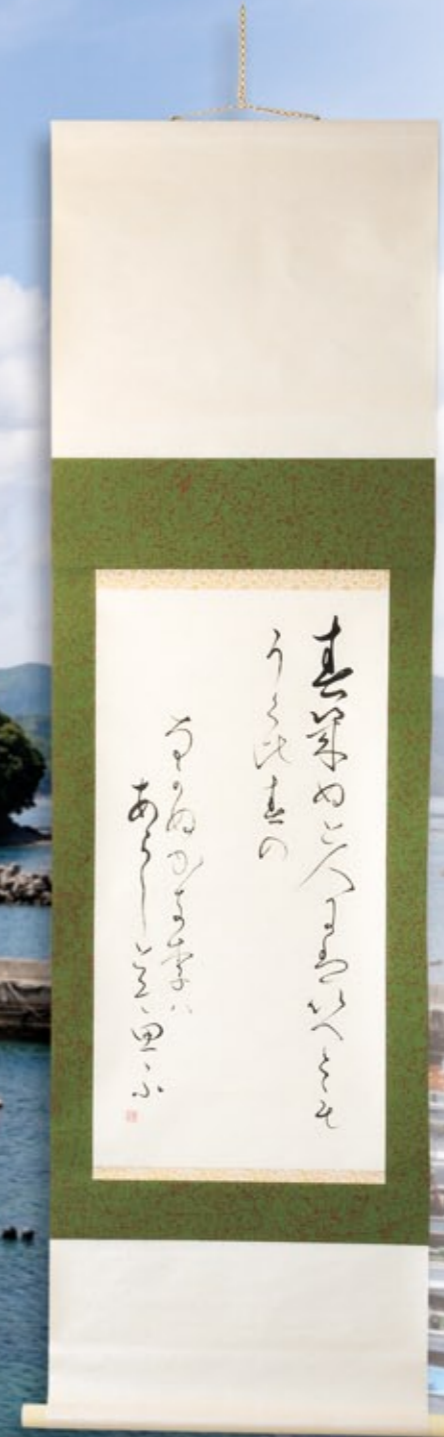 春来ぬと人はいへとも
うく比春の
なかぬかき李八
あらしとそ思ふ